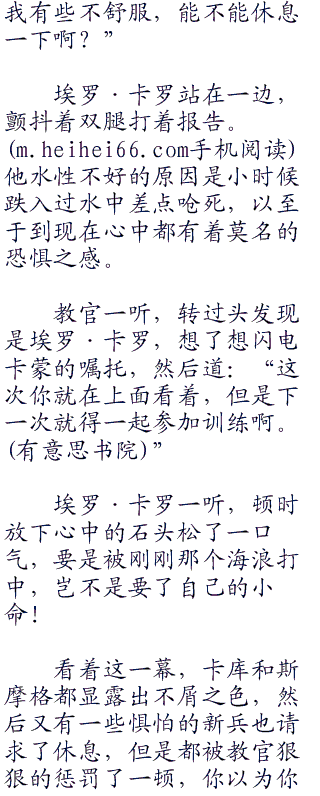 我有些不舒服，能不能休息
一下啊？”
埃罗·卡罗站在一边，
颤抖着双腿打着报告。
(m.heihei66.com手机阅读)
他水性不好的原因是小时候
跌入过水中差点呛死，以至
于到现在心中都有着莫名的
恐惧之感。
教官一听，转过头发现
是埃罗·卡罗，想了想闪电
卡蒙的嘱托，然后道：“这
次你就在上面看着，但是下
一次就得一起参加训练啊。
(有意思书院)”
埃罗·卡罗一听，顿时
放下心中的石头松了一口
气，要是被刚刚那个海浪打
中，岂不是要了自己的小
命！
看着这一幕，卡库和斯
摩格都显露出不屑之色，然
后又有一些惧怕的新兵也请
求了休息，但是都被教官狠
狠的惩罚了一顿，你以为你